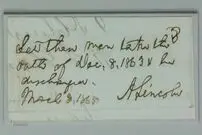 Let these men take the
oath of Dec. 8, 1863 & be
discharged.
March 8, 1865
A. Lincoln